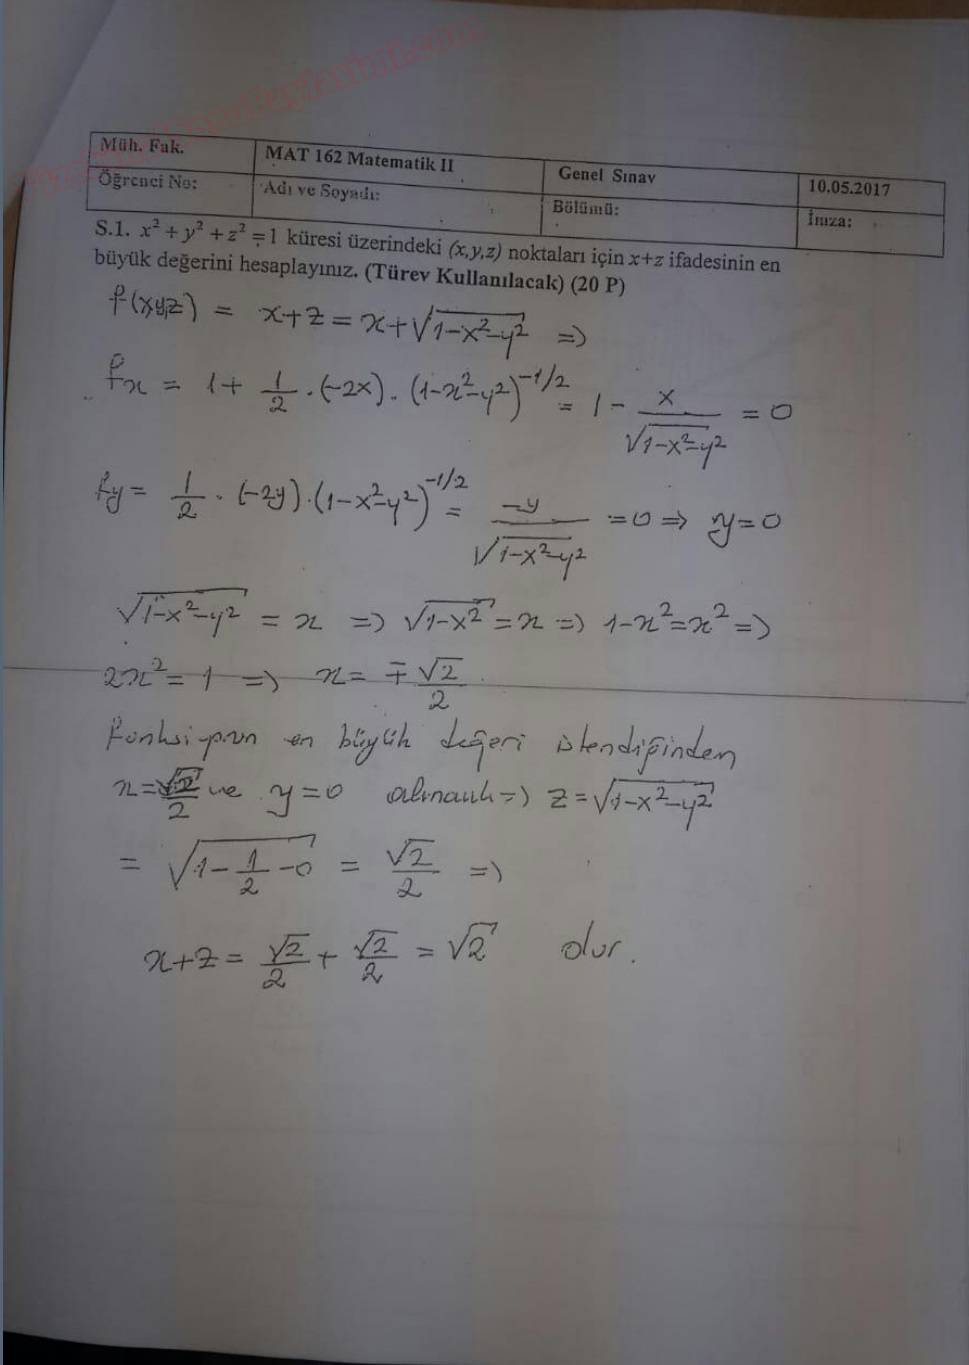 Müh. Fak. MAT 162 Matematik II Genel Sınav 10.05.2017
Öğrenci No: Adı ve Soyadı: Bölümü: İmza:
S.1. x² + y² + z² = 1 küresi üzerindeki (x,y,z) noktaları için x+z ifadesinin en
büyük değerini hesaplayınız. (Türev Kullanılacak) (20 P)
f(x,y,z) = x+z = x+√(1-x²-y²) ⇒
fx = 1 + 1/2 · (-2x) · (1-x²-y²)^(-1/2) = 1 - x/√(1-x²-y²) = 0
fy = 1/2 · (-2y) · (1-x²-y²)^(-1/2) = -y/√(1-x²-y²) = 0 ⇒ y=0
√(1-x²-y²) = x ⇒ √(1-x²) = x ⇒ 1-x² = x² ⇒
2x² = 1 ⇒ x = ∓ √2/2
Fonksiyonun en büyük değeri istendiğinden
x = √2/2 ve y=0 alınarak ⇒ z = √(1-x²-y²)
= √(1 - 1/2 - 0) = √2/2 ⇒
x+z = √2/2 + √2/2 = √2 olur.